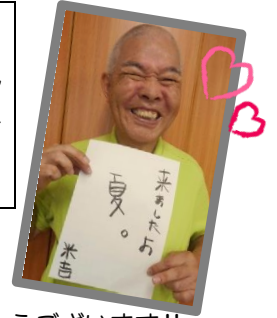 来ましたよ
夏。
米吉
うございます!!